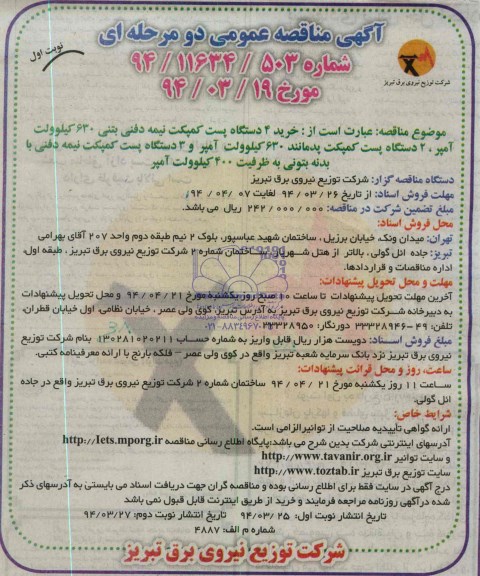 آگهی مناقصه عمومی دو مرحله ای
نوبت اول
شماره ۵۰۳ / ۱۱۶۳۴ / ۹۴
مورخ ۱۹ / ۰۳ / ۹۴
شرکت توزیع نیروی برق تبریز
موضوع مناقصه: عبارت است از : خرید ۴ دستگاه پست کمپکت نیمه دفنی بتنی ۶۳۰ کیلوولت
آمپر ، ۲ دستگاه پست کمپکت پدمانند ۶۳۰ کیلوولت آمپر و ۳ دستگاه پست کمپکت نیمه دفنی با
بدنه بتونی به ظرفیت ۴۰۰ کیلوولت آمپر
دستگاه مناقصه گزار: شرکت توزیع نیروی برق تبریز
مهلت فروش اسناد: از تاریخ ۲۶ / ۰۳ / ۹۴ لغایت ۰۷ / ۰۴ / ۹۴
مبلغ تضمین شرکت در مناقصه: ۲۴۲/۰۰۰/۰۰۰ ریال می باشد.
محل فروش اسناد:
تهران: میدان ونک، خیابان برزیل، ساختمان شهید عباسپور، بلوک ۲ نیم طبقه دوم واحد ۲۰۷ آقای بهرامی
تبریز: جاده ائل گولی، بالاتر از هتل شهریار، ساختمان شماره ۲ شرکت توزیع نیروی برق تبریز ، طبقه اول،
اداره مناقصات و قراردادها.
مهلت و محل تحویل پیشنهادات:
آخرین مهلت تحویل پیشنهادات تا ساعت ۱۰ صبح روز یکشنبه مورخ ۲۱ / ۰۴ / ۹۴ و محل تحویل پیشنهادات
به دبیرخانه شرکت توزیع نیروی برق تبریز به آدرس تبریز، کوی ولی عصر، خیابان نظامی، اول خیابان قطران،
تلفن: ۴۹-۳۳۳۲۸۹۴۶ دورنگار: ۳۳۳۲۸۹۵۰
۰۲۱-۸۸۳۴۹۶۷۰
مبلغ فروش اسناد: دویست هزار ریال قابل واریز به شماره حساب ۱۳۰۲۸۱۰۲۰۲۱۱ بنام شرکت توزیع
نیروی برق تبریز نزد بانک سرمایه شعبه تبریز واقع در کوی ولی عصر – فلکه بارنج با ارائه معرفینامه کتبی.
ساعت، روز و محل قرائت پیشنهادات:
ساعت ۱۱ روز یکشنبه مورخ ۲۱ / ۰۴ / ۹۴ ساختمان شماره ۲ شرکت توزیع نیروی برق تبریز واقع در جاده
ائل گولی.
شرایط خاص:
ارائه گواهی تأییدیه صلاحیت از توانیرالزامی است.
آدرسهای اینترنتی شرکت بدین شرح می باشد:پایگاه اطلاع رسانی مناقصه http://Iets.mporg.ir
و سایت توانیر http://www.tavanir.org.ir
سایت توزیع برق تبریز http://www.toztab.ir
درج آگهی در سایت فقط برای اطلاع رسانی بوده و مناقصه گران جهت دریافت اسناد می بایستی به آدرسهای ذکر
شده درآگهی روزنامه مراجعه فرمایند و خرید از طریق اینترنت قابل قبول نمی باشد
تاریخ انتشار نوبت اول: ۹۴/۰۳/۲۵ تاریخ انتشار نوبت دوم: ۹۴/۰۳/۲۷
شماره م الف: ۴۸۸۷
شرکت توزیع نیروی برق تبریز